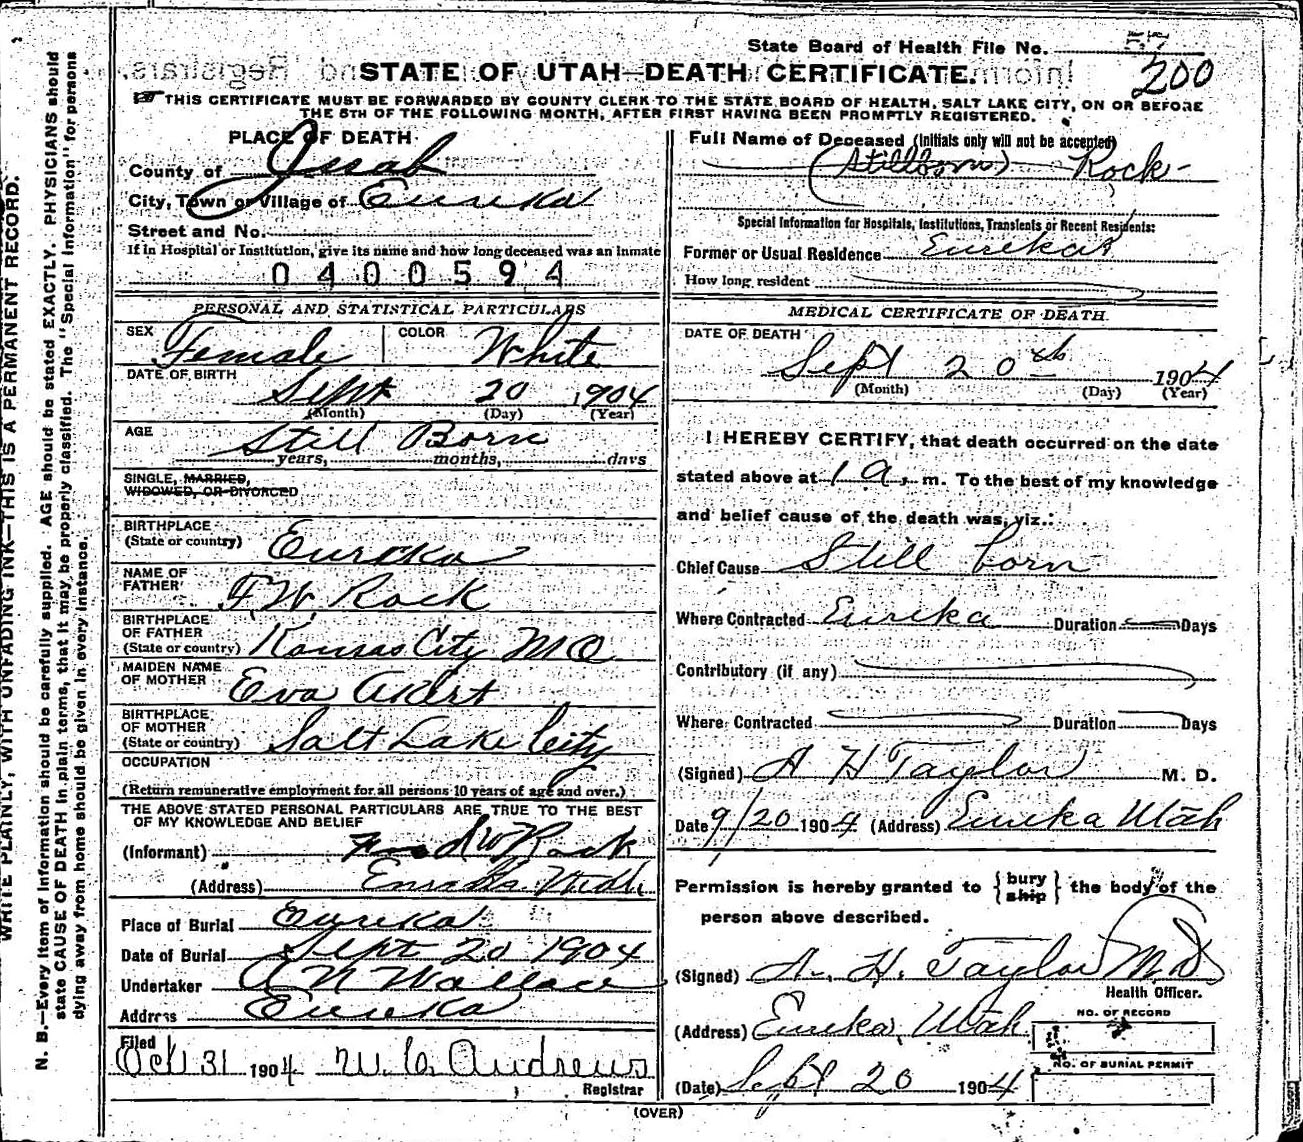 State Board of Health File No. 57
200
STATE OF UTAH—DEATH CERTIFICATE.
THIS CERTIFICATE MUST BE FORWARDED BY COUNTY CLERK TO THE STATE BOARD OF HEALTH, SALT LAKE CITY, ON OR BEFORE
THE 5TH OF THE FOLLOWING MONTH, AFTER FIRST HAVING BEEN PROMPTLY REGISTERED.
WRITE PLAINLY, WITH UNFADING INK—THIS IS A PERMANENT RECORD.
N. B.—Every item of information should be carefully supplied. AGE should be stated EXACTLY. PHYSICIANS should
state CAUSE OF DEATH in plain terms, that it may be properly classified. The "Special Information" for persons
dying away from home should be given in every instance.
PLACE OF DEATH
County of
City, Town or Village of Eureka
Street and No.
If in Hospital or Institution, give its name and how long deceased was an inmate
0400594
PERSONAL AND STATISTICAL PARTICULARS
SEX Female COLOR White
DATE OF BIRTH
Sept 20 1904
(Month) (Day) (Year)
AGE Still Born
years, months, days
SINGLE, MARRIED,
WIDOWED, OR DIVORCED
BIRTHPLACE
(State or country) Eureka
NAME OF
FATHER F W. Rock
BIRTHPLACE
OF FATHER
(State or country) Kansas City MO
MAIDEN NAME
OF MOTHER Eva Akert
BIRTHPLACE
OF MOTHER
(State or country) Salt Lake City
OCCUPATION
(Return remunerative employment for all persons 10 years of age and over.)
THE ABOVE STATED PERSONAL PARTICULARS ARE TRUE TO THE BEST
OF MY KNOWLEDGE AND BELIEF
(Informant) W Rock
(Address) Eureka Utah
Place of Burial Eureka
Date of Burial Sept 20 1904
Undertaker A N Wallace
Address Eureka
Filed
Oct 31 1904 W. C. Andrews
Registrar
Full Name of Deceased (Initials only will not be accepted)
(Stillborn) Rock
Special Information for Hospitals, Institutions, Transients or Recent Residents:
Former or Usual Residence Eureka
How long resident
MEDICAL CERTIFICATE OF DEATH.
DATE OF DEATH
Sept 20th 1904
(Month) (Day) (Year)
I HEREBY CERTIFY, that death occurred on the date
stated above at 1 a. m. To the best of my knowledge
and belief cause of the death was, viz.:
Chief Cause Still born
Where Contracted Eureka Duration Days
Contributory (if any)
Where Contracted Duration Days
(Signed) A H Taylor M. D.
Date 9/20 1904 (Address) Eureka Utah
Permission is hereby granted to {bury ship} the body of the
person above described.
(Signed) A. H. Taylor M.D.
Health Officer.
(Address) Eureka, Utah
NO. OF RECORD
NO. OF BURIAL PERMIT
(Date) Sept 20 1904
(OVER)